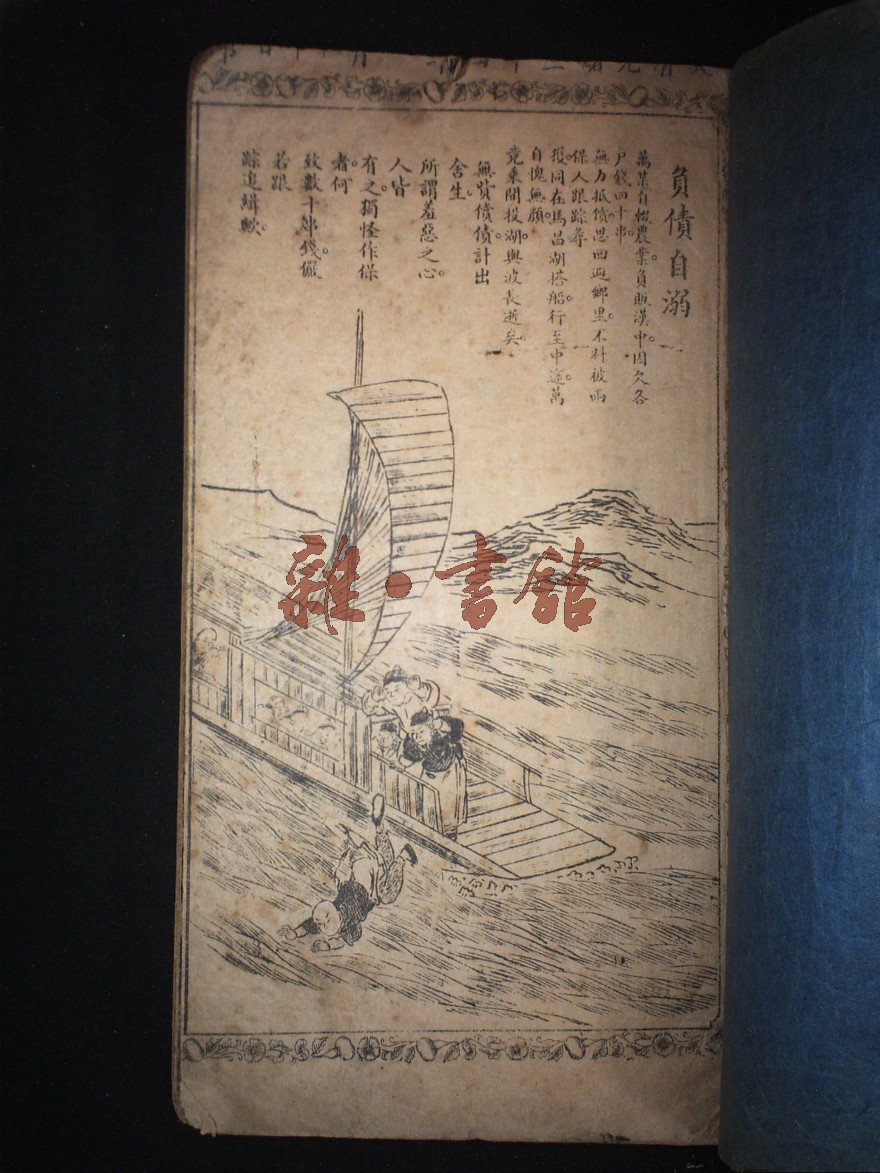 大清光緒三十四年
負債自溺
萬某自輟農業。負販漢中。因欠各
戶錢四十串。
無力抵償。思回避鄉里。不料被兩
保人跟踪尋
獲。同在馬昌湖搭船。行至中途。萬
自愧無顏。
竟乘間投湖。與波長逝矣。
無貲償債。計出
舍生。
所謂羞惡之心。
人皆
有之。獨怪作保
者。何
致數十串錢。儼
若跟
踪追緝歟。
雜·書館